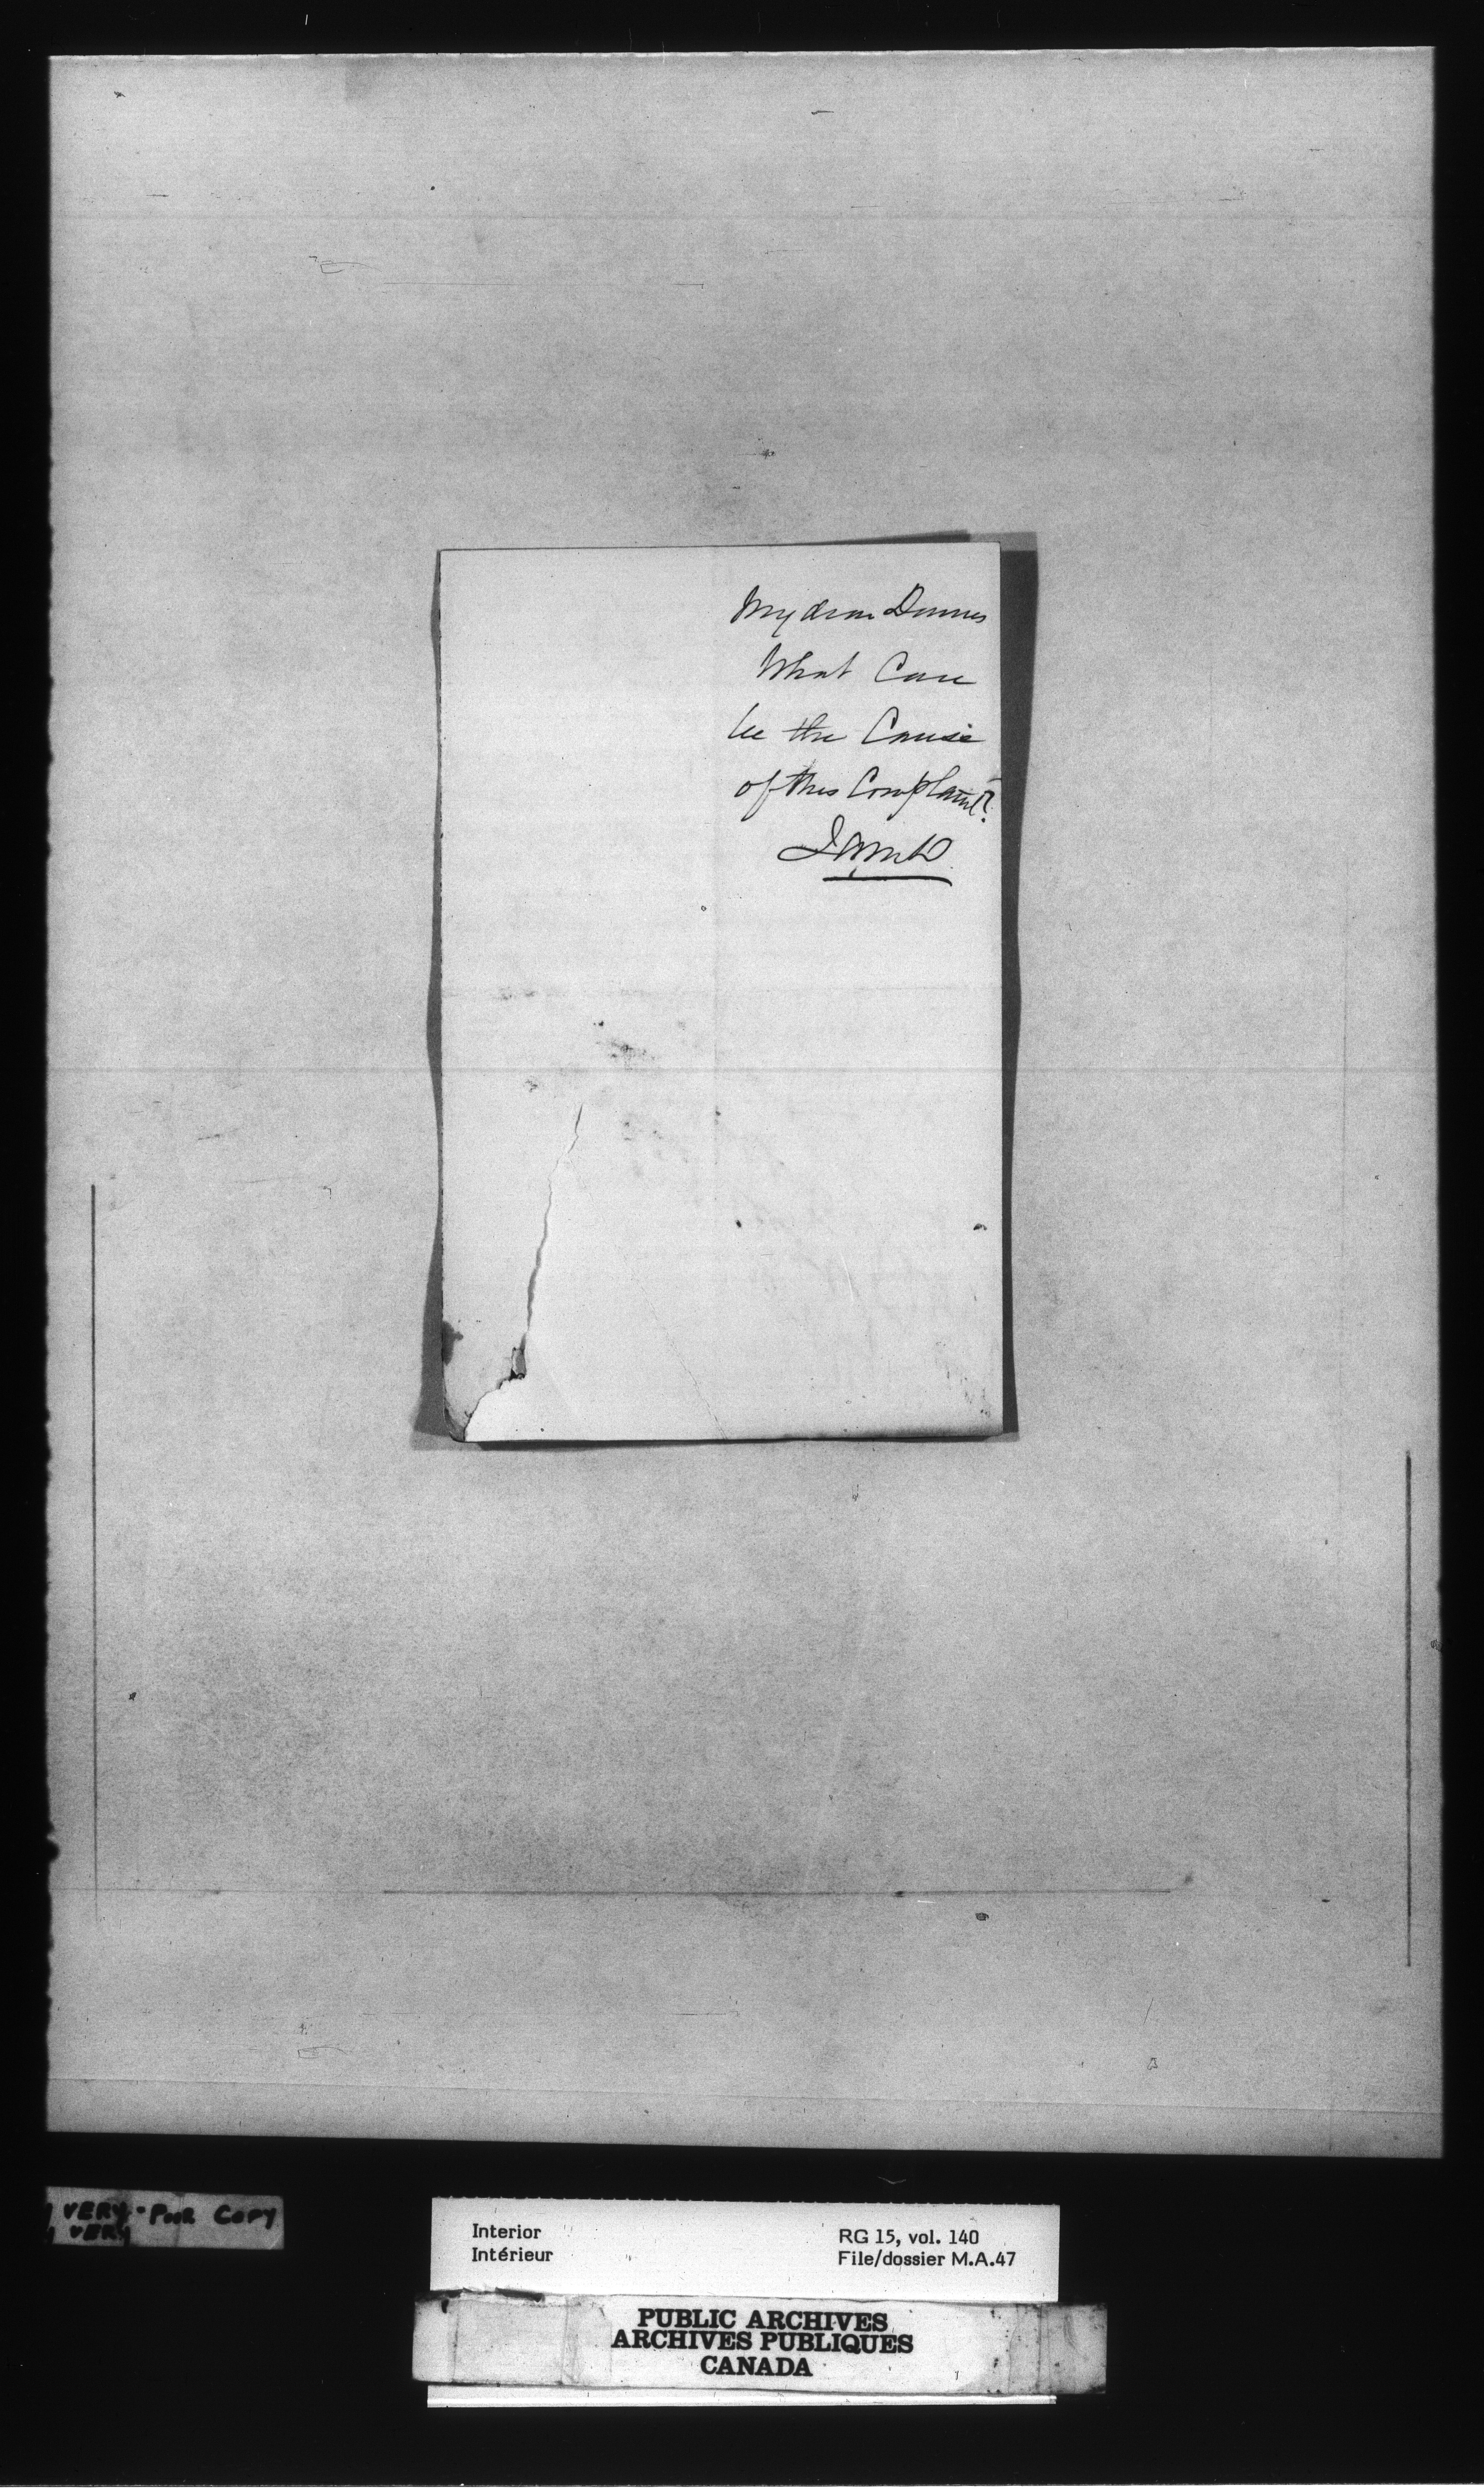 My dear Dennis
What Can
be the Cause
of this Complaint?
JAMcD
VERY-POOR COPY
VERY
Interior
Intérieur
RG 15, vol. 140
File/dossier M.A.47
PUBLIC ARCHIVES
ARCHIVES PUBLIQUES
CANADA